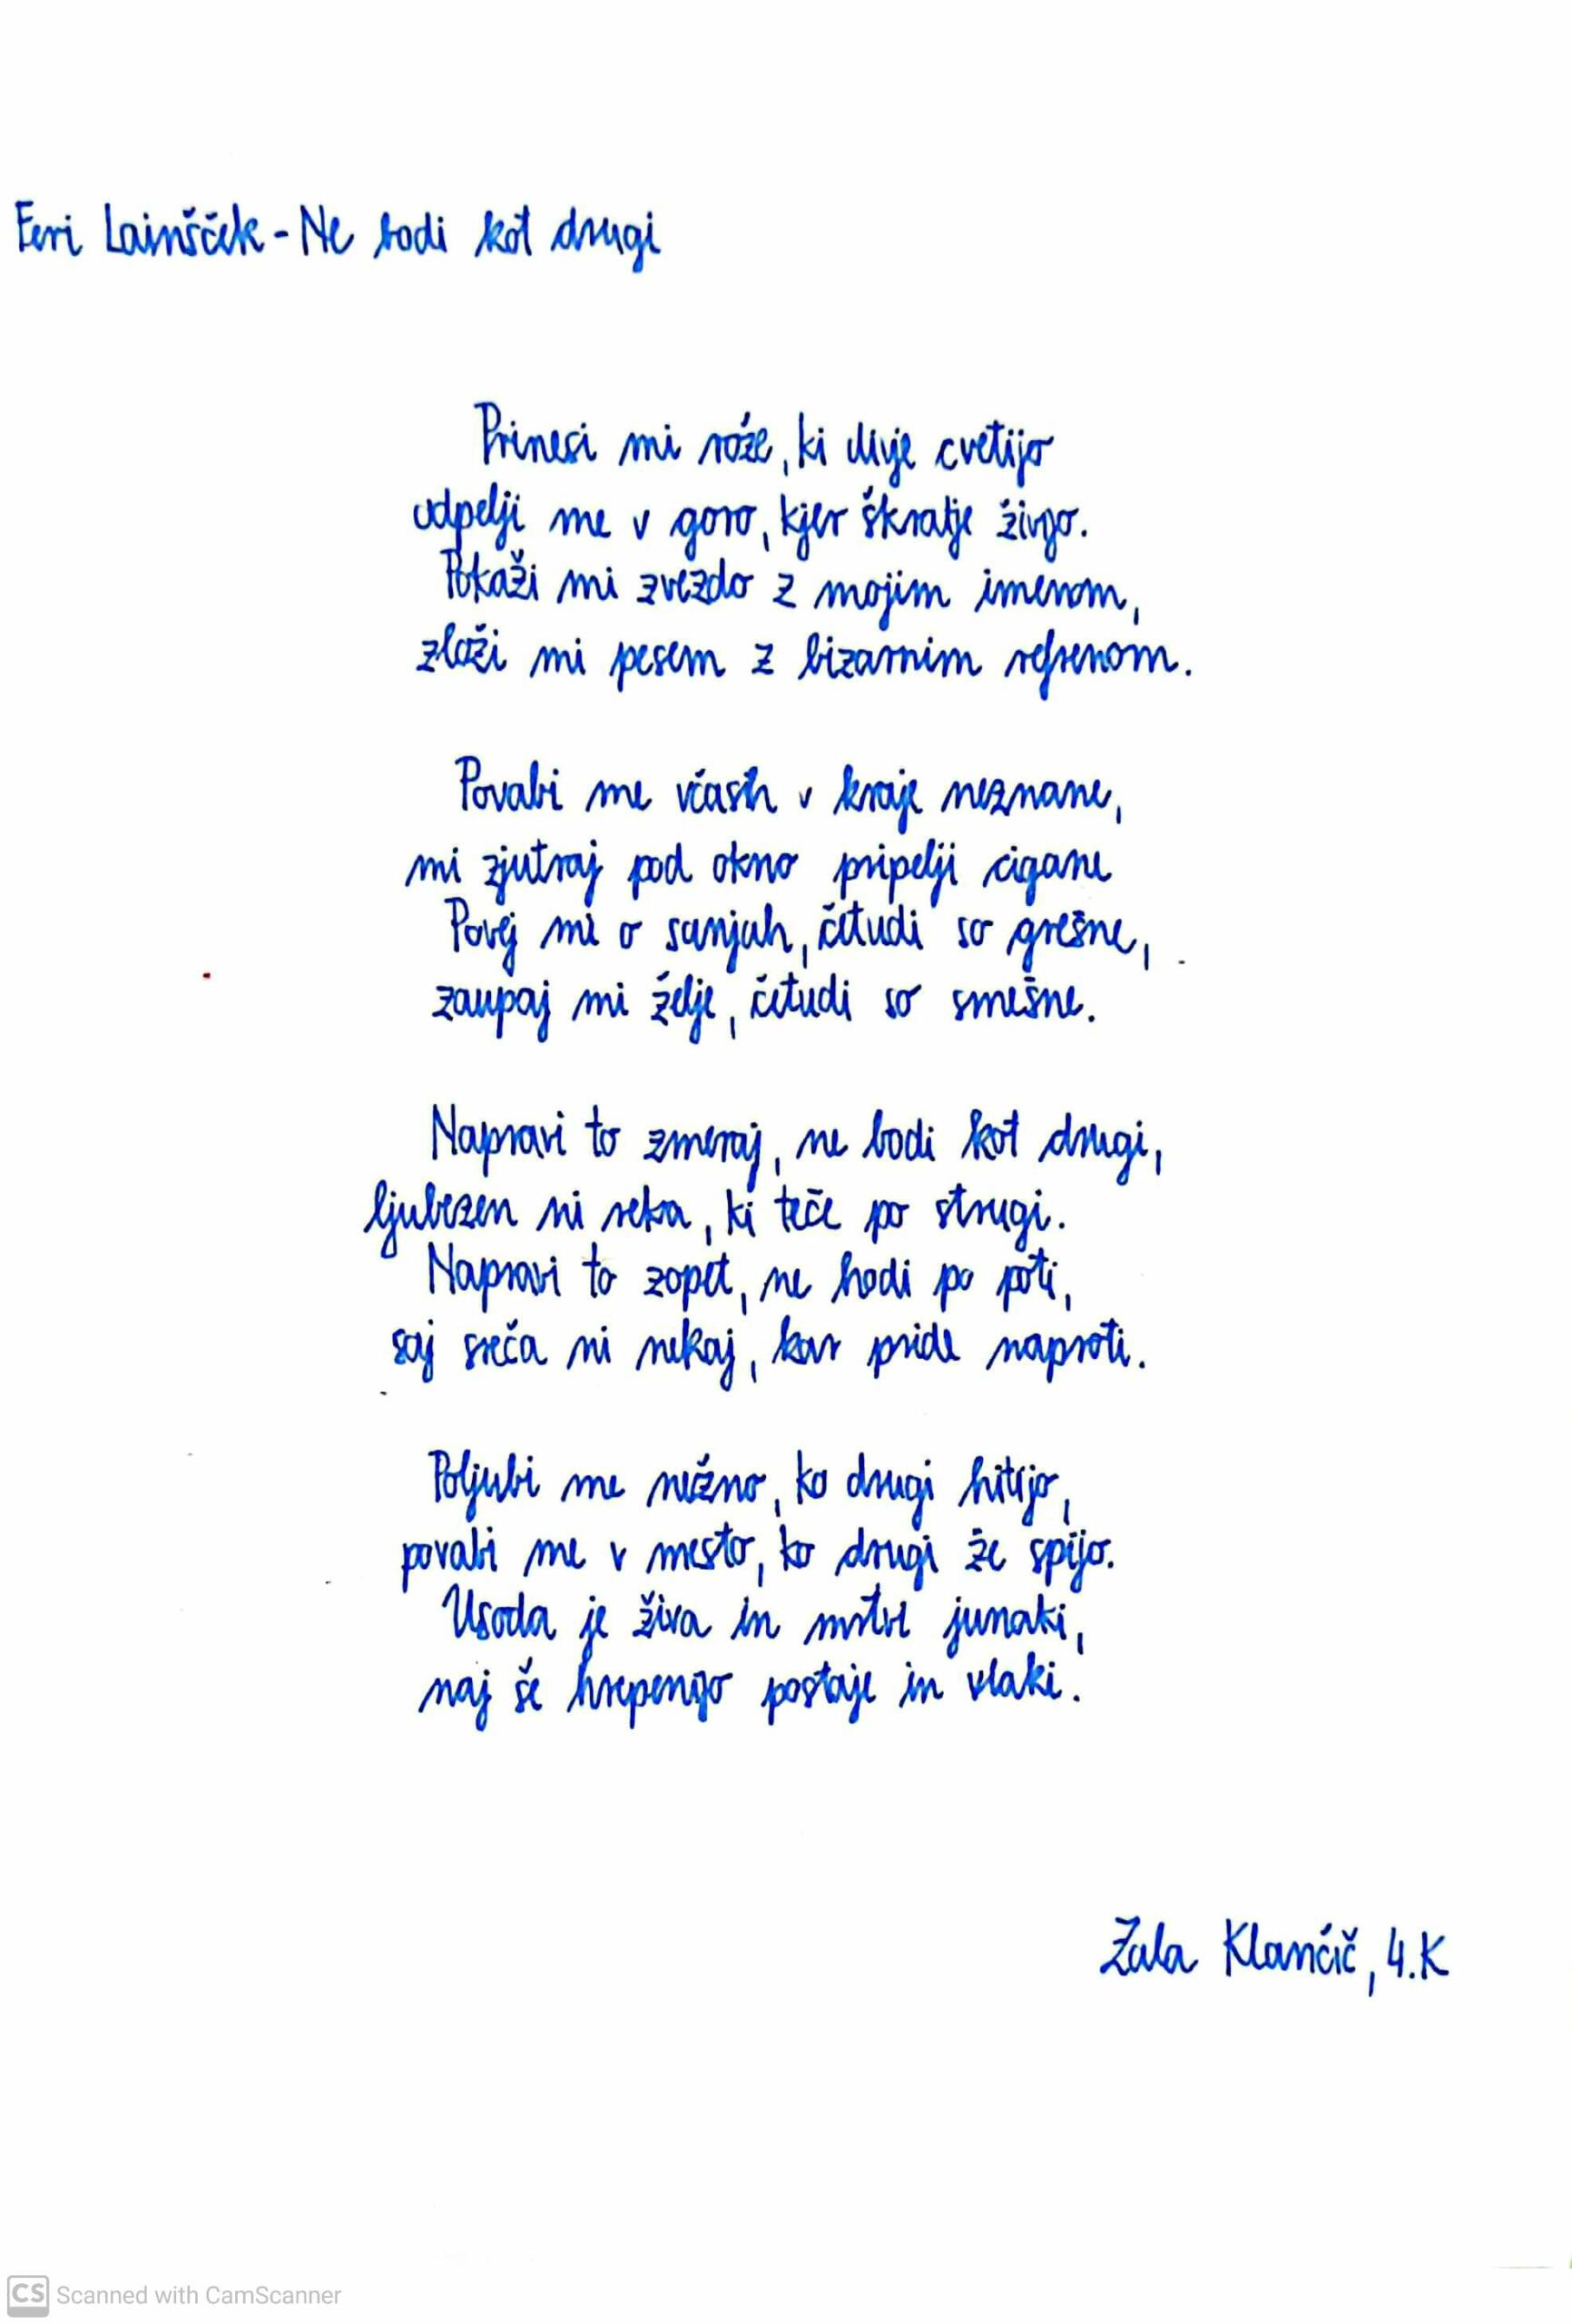 Feri Lainšček - Ne bodi kot drugi
Prinesi mi rože, ki divje cvetijo
odpelji me v goro, kjer škratje živijo.
Pokaži mi zvezdo z mojim imenom,
zloži mi pesem z bizarnim refrenom.
Povabi me včasih v kraje neznane,
mi zjutraj pod okno pripelji cigane
Povej mi o sanjah, četudi so grešne,
zaupaj mi želje, četudi so smešne.
Napravi to zmeraj, ne bodi kot drugi,
ljubezen ni reka, ki teče po strugi.
Napravi to zopet, ne hodi po poti,
saj sreča ni nekaj, kar pride naproti.
Poljubi me nežno, ko drugi hitijo,
povabi me v mesto, ko drugi že spijo.
Usoda je živa in mrtvi junaki,
naj še hrepenijo postaje in vlaki.
Zala Klančič, 4.K
CS Scanned with CamScanner